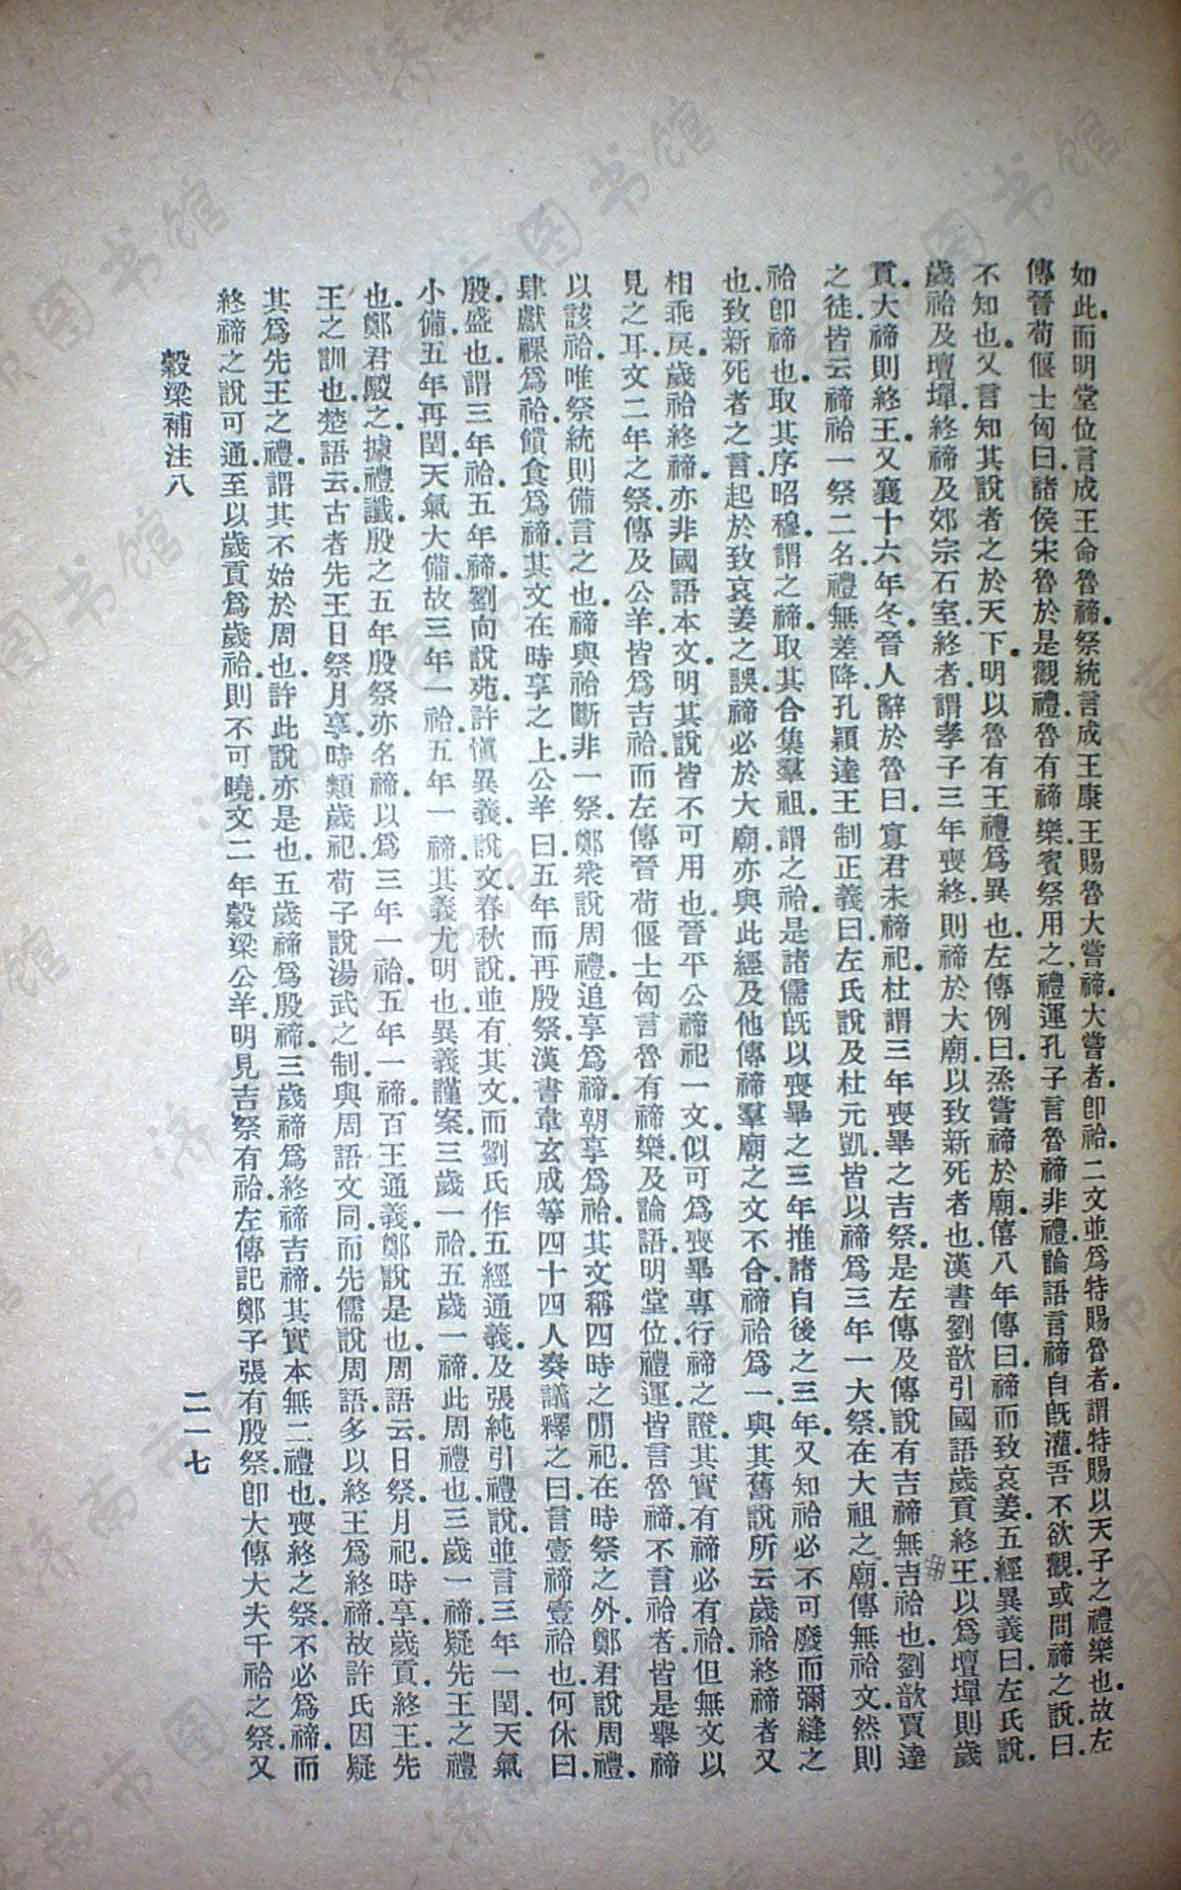 如此。而明堂位言成王命魯禘。祭統言成王康王賜魯大嘗禘。大嘗者。卽祫。二文並爲特賜魯者。謂特賜以天子之禮樂也。故左
傳晉荀偃士匄曰。諸侯宋魯於是觀禮。魯有禘樂。賓祭用之。禮運孔子言魯禘非禮。論語言禘自旣灌。吾不欲觀。或問禘之說。曰。
不知也。又言知其說者之於天下。明以魯有王禮爲異也。左傳例曰。烝嘗禘於廟。僖八年傳曰。禘而致哀姜。五經異義曰。左氏說。
歲祫及壇墠。終禘及郊宗石室。終者。謂孝子三年喪終。則禘於大廟。以致新死者也。漢書劉歆引國語歲貢終王。以爲壇墠則歲
貢。大禘則終王。又襄十六年冬。晉人辭於魯曰。寡君未禘祀。杜謂三年喪畢之吉祭。是左傳及傳說有吉禘無吉祫也。劉歆賈逵
之徒。皆云禘祫一祭二名。禮無差降。孔穎達王制正義曰。左氏說及杜元凱。皆以禘爲三年一大祭。在大祖之廟。傳無祫文。然則
祫卽禘也。取其序昭穆。謂之禘。取其合集羣祖。謂之祫。是諸儒旣以喪畢之三年推諸自後之三年。又知祫必不可廢而彌縫之
也。致新死者之言。起於致哀姜之誤。禘必於大廟。亦與此經及他傳禘羣廟之文不合。禘祫爲一。與其舊說所云歲祫終禘者又
相乖戾。歲祫終禘。亦非國語本文。明其說皆不可用也。晉平公禘祀一文。似可爲喪畢專行禘之證。其實有禘必有祫。但無文以
見之耳。文二年之祭。傳及公羊皆爲吉祫。而左傳晉荀偃士匄言魯有禘樂。及論語。明堂位。禮運。皆言魯禘。不言祫者。皆是舉禘
以該祫。唯祭統則備言之也。禘與祫斷非一祭。鄭衆說周禮。追享爲禘。朝享爲祫。其文稱四時之閒祀。在時祭之外。鄭君說周禮。
肆獻祼爲祫。饋食爲禘。其文在時享之上。公羊曰。五年而再殷祭。漢書韋玄成等四十四人奏議釋之曰。言壹禘壹祫也。何休曰。
殷。盛也。謂三年祫。五年禘。劉向說苑。許愼異義。說文。春秋說。並有其文。而劉氏作五經通義。及張純引禮說。並言三年一閏。天氣
小備。五年再閏。天氣大備。故三年一祫。五年一禘。其義尤明也。異義謹案。三歲一祫。五歲一禘。此周禮也。三歲一禘。疑先王之禮
也。鄭君駮之。據禮讖。殷之五年殷祭亦名禘。以爲三年一祫。五年一禘。百王通義。鄭說是也。周語云。日祭。月祀。時享。歲貢。終王。先
王之訓也。楚語云。古者先王日祭月享。時類歲祀。荀子說湯武之制。與周語文同。而先儒說周語。多以終王爲終禘。故許氏因疑
其爲先王之禮。謂其不始於周也。許此說亦是也。五歲禘爲殷禘。三歲禘爲終禘吉禘。其實本無二禮也。喪終之祭。不必爲禘。而
終禘之說可通。至以歲貢爲歲祫。則不可曉。文二年穀梁公羊。明見吉祭有祫。左傳記鄭子張有殷祭。卽大傳大夫干祫之祭。又
穀梁補注八
二一七